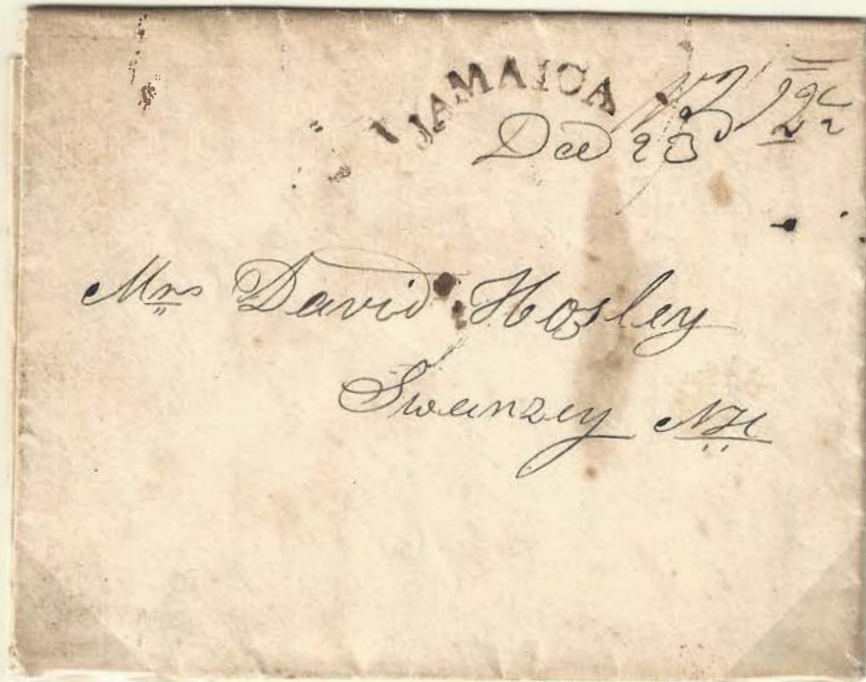 JAMAICA
Dec 23
Mrs David Hosley
Swanzey NH